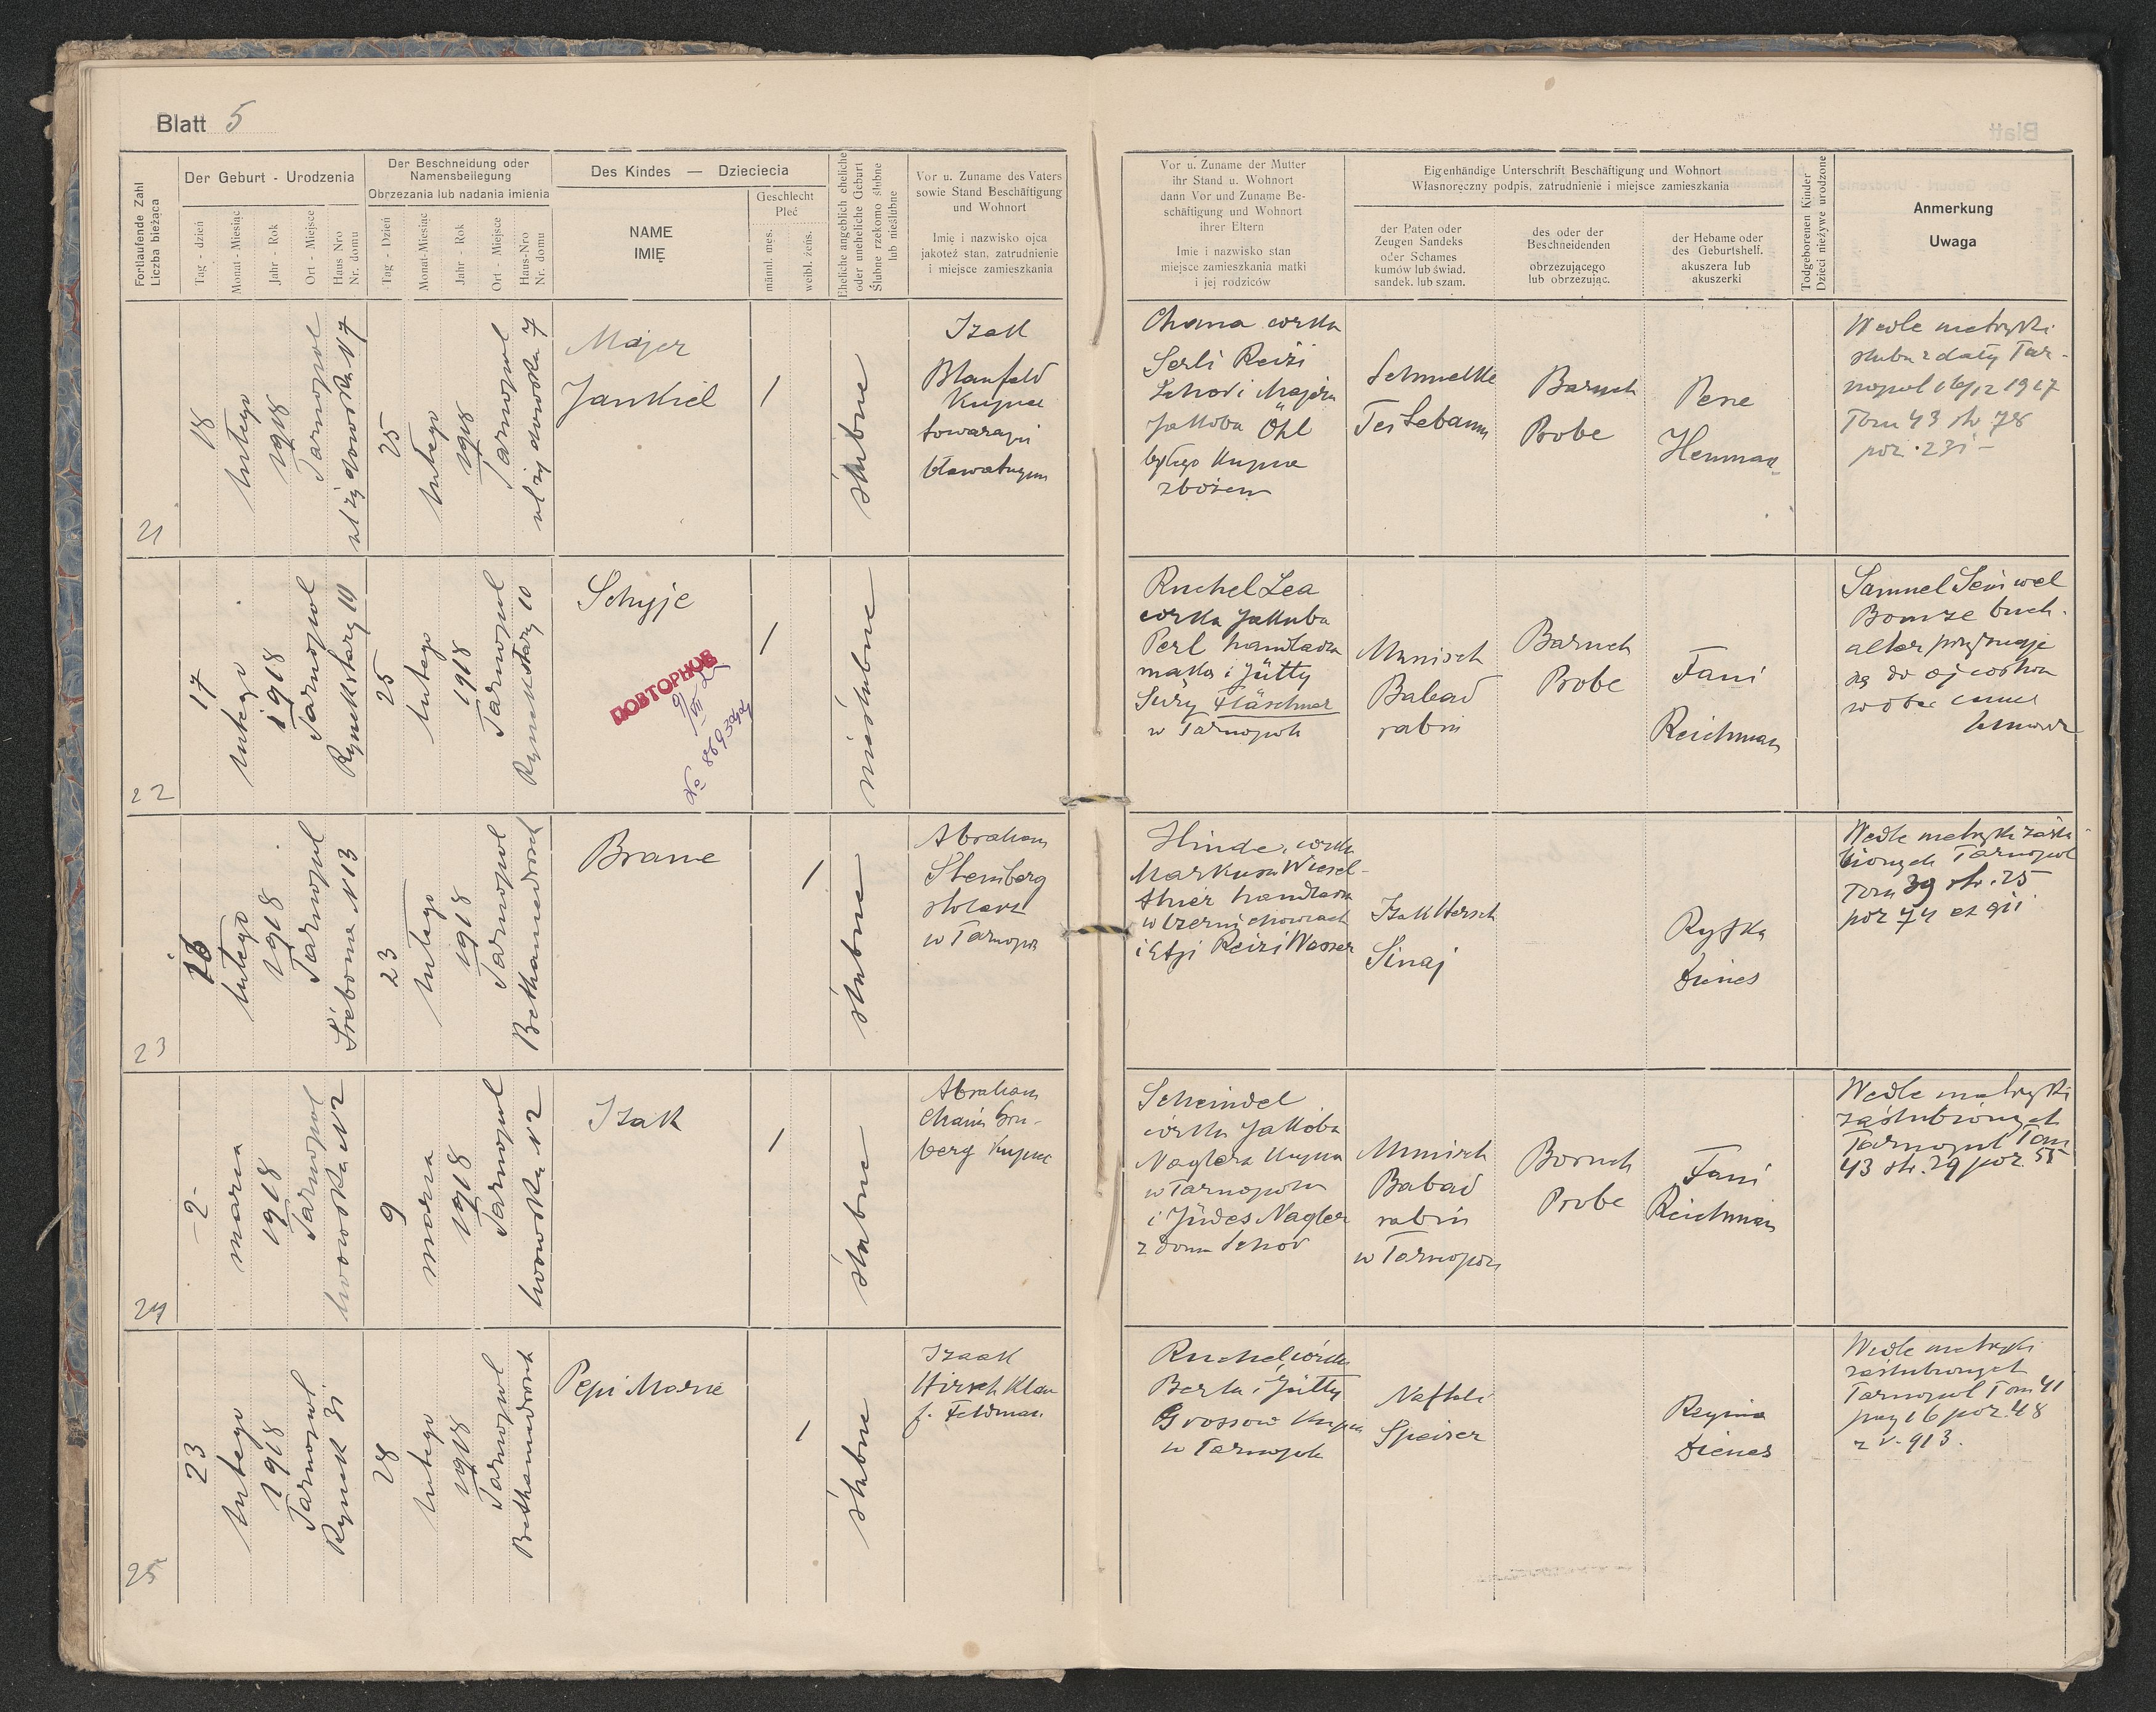 Blatt 5
Fortlaufende Zahl
Liczba bieżąca
Der Geburt - Urodzenia
Tag - dzień
Monat - Miesiąc
Jahr - Rok
Ort - Miejsce
Haus Nro
Nr. domu
Der Beschneidung oder
Namensbeilegung
Obrzezania lub nadania imienia
Tag - Dzień
Monat-Miesiac
Jahr - Rok
Ort - Miejsce
Haus-Nro
Nr. domu
Des Kindes — Dzieciecia
NAME
IMIĘ
Geschlecht
Płeć
mannl. męs.
weibl. żeńs.
Eheliche angeblich eheliche
oder uneheliche Geburt
Ślubne rzekomo ślubne
lub nieślubne
Vor u. Zuname des Vaters
sowie Stand Beschäftigung
und Wohnort
Imię i nazwisko ojca
jakoteż stan, zatrudnienie
i miejsce zamieszkania
Vor u. Zuname der Mutter
ihr Stand u. Wohnort
dann Vor und Zuname Be-
schäftigung und Wohnort
ihrer Eltern
Imię i nazwisko stan
miejsce zamieszkania matki
i jej rodziców
Eigenhändige Unterschrift Beschäftigung und Wohnort
Własnoręczny podpis, zatrudnienie i miejsce zamieszkania
der Paten oder
Zeugen Sandeks
oder Schames
kumów lub świad.
sandek. lub szam.
des oder der
Beschneidenden
obrzezującego
lub obrzezując.
der Hebame oder
des Geburtshelf.
akuszera lub
akuszerki
Todgeborenen Kinder
Dzieci nieżywe urodzone
Anmerkung
Uwaga
21
18
lutego
1918
Tarnopol
ul żydowska N 7
25
lutego
1918
Tarnopol
ul żydowska 7
Majer
Jankiel
1
ślubne
Izak
Blaufeld
kupiec
towarami
bławatnymi
Chana córka
Serli Reizi
Schor i Majera
Jakoba Öhl
byłego kupca
zbożem
Schmelke
Teitebaum
Baruch
Probe
Perie
Herman
Wedle metryki
ślubu z daty Tar-
nopol 16/12 1917
Tom 43 str 78
poz. 231 -
22
17
lutego
1918
Tarnopol
Rynek stary 10
25
lutego
1918
Tarnopol
Rynek stary 10
Schyje
ПОВТОРНОЕ
1
nieślubne
Ruchel Lea
córka Jakuba
Perl handlarza
mąką i Jütty
Sury Fläschner
w Tarnopolu
Munisch
Babad
rabin
Baruch
Probe
Fani
Reichman
Samuel
Bomze buch-
alter przyznaje
się do ojcostwa
23
16
lutego
1918
Tarnopol
N 13
23
lutego
1918
Tarnopol
Bethamedrosch
Brane
1
ślubne
Abraham
Steinberg
stolarz
w Tarnopolu
Hinde, córka
Markusa Wiesel-
thier handlarza
w Czernichowcach
i Etji Reizi Wasser
Izak Hersch
Sinaj
Ryfka
Dienes
Wedle metryki zaślu-
bionych Tarnopol
Tom 39 str. 25
poz 74 ex 911
24
2
marca
1918
Tarnopol
lwowska N 2
9
marca
1918
Tarnopol
lwowska N 2
Izak
1
ślubne
Abraham
Chaim
berg kupiec
Scheindel
córka Jakoba
Naglera kupca
w Tarnopolu
i Jüdes Nagler
z domu Schor
Munisch
Babad
rabin
w Tarnopolu
Boruch
Probe
Fani
Reichman
Wedle metryki
zaślubionych
Tarnopol Tom
43 str. 29 poz. 55
25
23
lutego
1918
Tarnopol
Rynek 31
28
lutego
1918
Tarnopol
Bethamedrosch
Pepi Marie
1
ślubne
Izaak
Hirsch Klar
f. Feldman
Ruchel córka
Berla i Jütty
Grossow kupca
w Tarnopolu
Naftali
Speiser
Regina
Dienes
Wedle metryki
zaślubionych
Tarnopol Tom 41
pag 16 poz. 48
z r. 913.